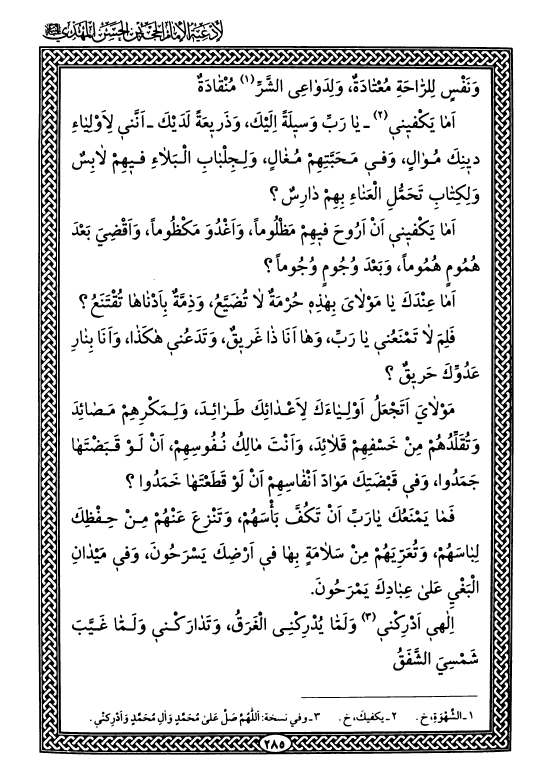 لأدعية الإمام الحجة بن الحسن المهدي
وَنَفْسٍ لِلرّاحَةِ مُعْتادَةٌ، وَلِدَواعِى الشَّرِّ (١) مُنْقادَةٌ
اَما يَكْفيني (٢) ـ يا رَبِّ وَسيلَةً اِلَيْكَ، وَذَريعَةً لَدَيْكَ ـ اَنَّني لِاَوْلِياءِ
دينِكَ مُوالٍ، وَفي مَحَبَّتِهِمْ مُغالٍ، وَلِجِلْبابِ الْبَلاءِ فيهِمْ لابِسٌ
وَلِكِتابِ تَحَمُّلِ الْعَناءِ بِهِمْ دارِسٌ ؟
اَما يَكْفيني اَنْ اَرُوحَ فيهِمْ مَظْلُوماً، وَاَغْدُوَ مَكْظُوماً، وَاَقْضِيَ بَعْدَ
هُمُومٍ هُمُوماً، وَبَعْدَ وُجُومٍ وُجُوماً ؟
اَما عِنْدَكَ يا مَوْلايَ بِهٰذِهِ حُرْمَةٌ لا تُضَيَّعُ، وَذِمَّةٌ بِاَدْناها تُقْتَنَعُ ؟
فَلِمَ لا تَمْنَعُني يا رَبِّ، وَها اَنَا ذا غَريقٌ، وَتَدَعُني هٰكَذا، وَاَنَا بِنارِ
عَدُوِّكَ حَريقٌ ؟
مَوْلايَ اَتَجْعَلُ اَوْلِياءَكَ لِاَعْدائِكَ طَرائِدَ، وَلِمَكْرِهِمْ مَصائِدَ
وَتُقَلِّدُهُمْ مِنْ خَسْفِهِمْ قَلائِدَ، وَاَنْتَ مالِكُ نُفُوسِهِمْ، اَنْ لَوْ قَبَضْتَها
جَمَدُوا، وَفي قَبْضَتِكَ مَوادُّ اَنْفاسِهِمْ اَنْ لَوْ قَطَعْتَها خَمَدُوا ؟
فَما يَمْنَعُكَ يارَبِّ اَنْ تَكُفَّ بَأْسَهُمْ، وَتَنْزِعَ عَنْهُمْ مِنْ حِفْظِكَ
لِباسَهُمْ، وَتُعَرِّيَهُمْ مِنْ سَلامَةٍ بِها في اَرْضِكَ يَسْرَحُونَ، وَفي مَيْدانِ
الْبَغْيِ عَلىٰ عِبادِكَ يَمْرَحُونَ.
اِلٰهي اَدْرِكْني (٣) وَلَمّا يُدْرِكْنِى الْغَرَقُ، وَتَدارَكْني وَلَمّا غَيَّبَ
شَمْسِيَ الشَّفَقُ
١ ـ الشَّهْوَةِ، خ . ٢ ـ يكفيكَ، خ . ٣ ـ وفي نسخة: اَللّٰهُمَّ صَلِّ عَلىٰ مُحَمَّدٍ وَآلِ مُحَمَّدٍ وَاَدْرِكْني .
٢٨٥